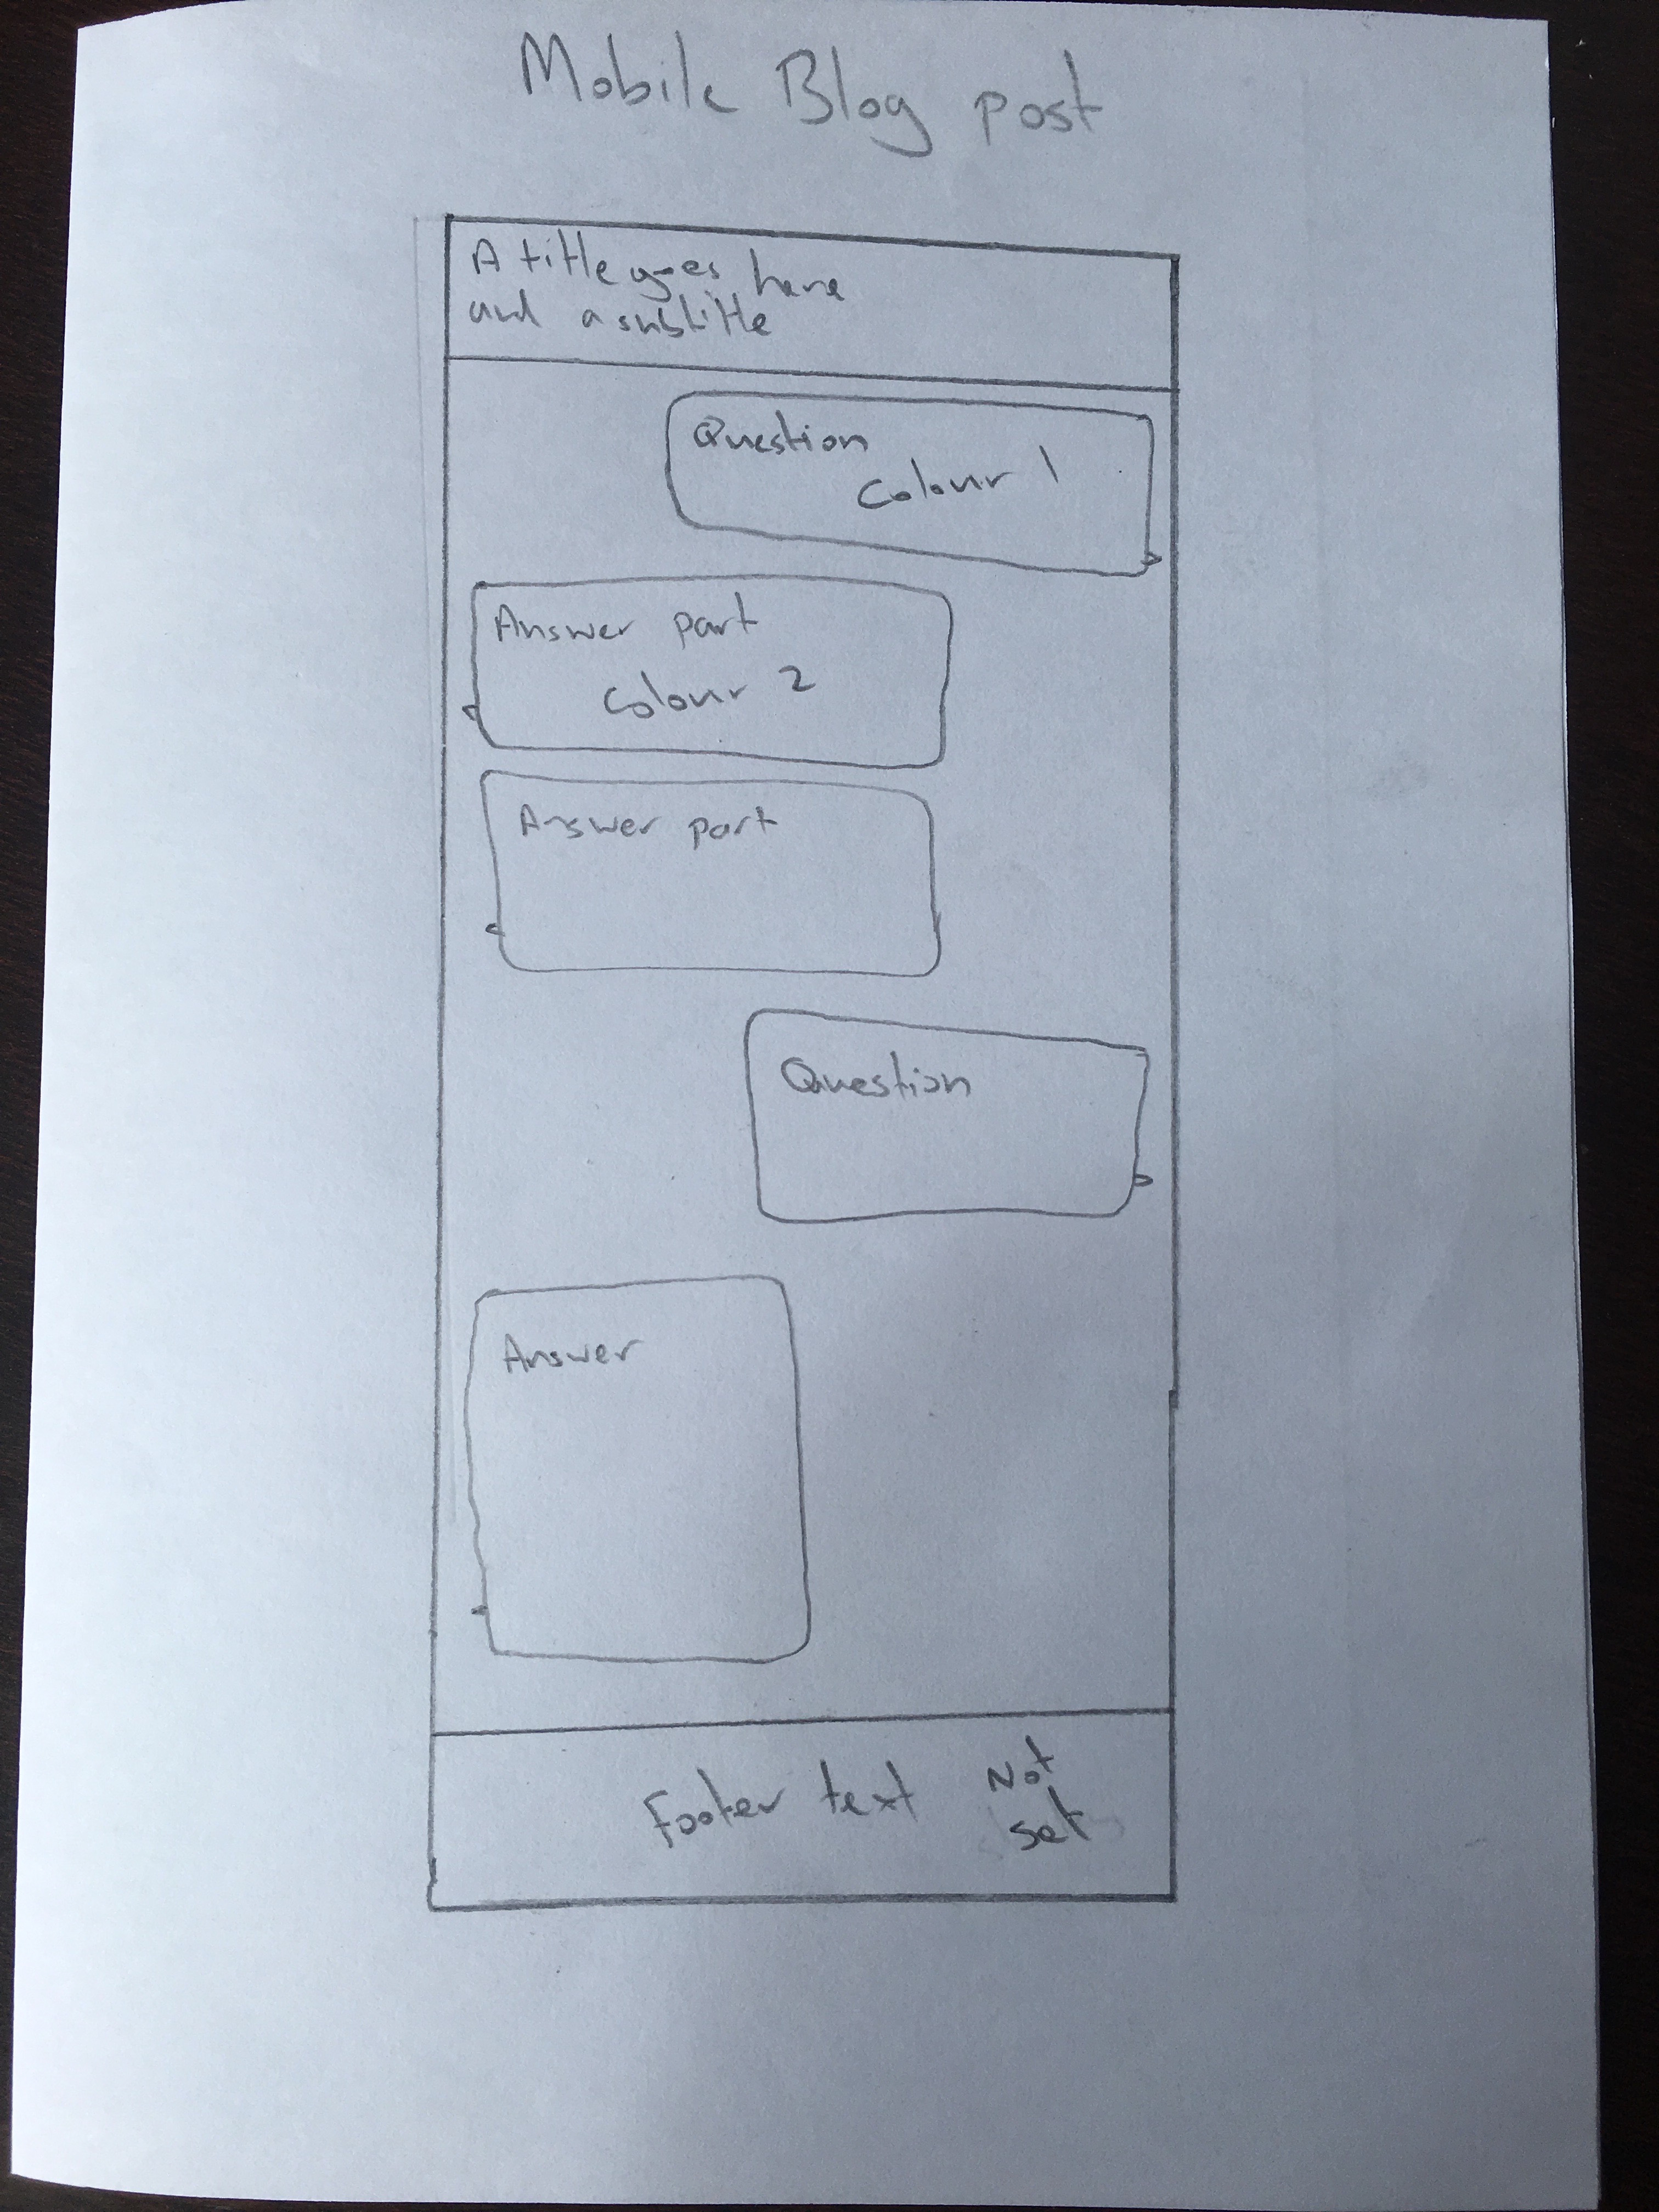 Mobile Blog post
A title goes here
and a subtitle
Question
Colour 1
Answer part
Colour 2
Answer part
Question
Answer
Footer text
Not
set